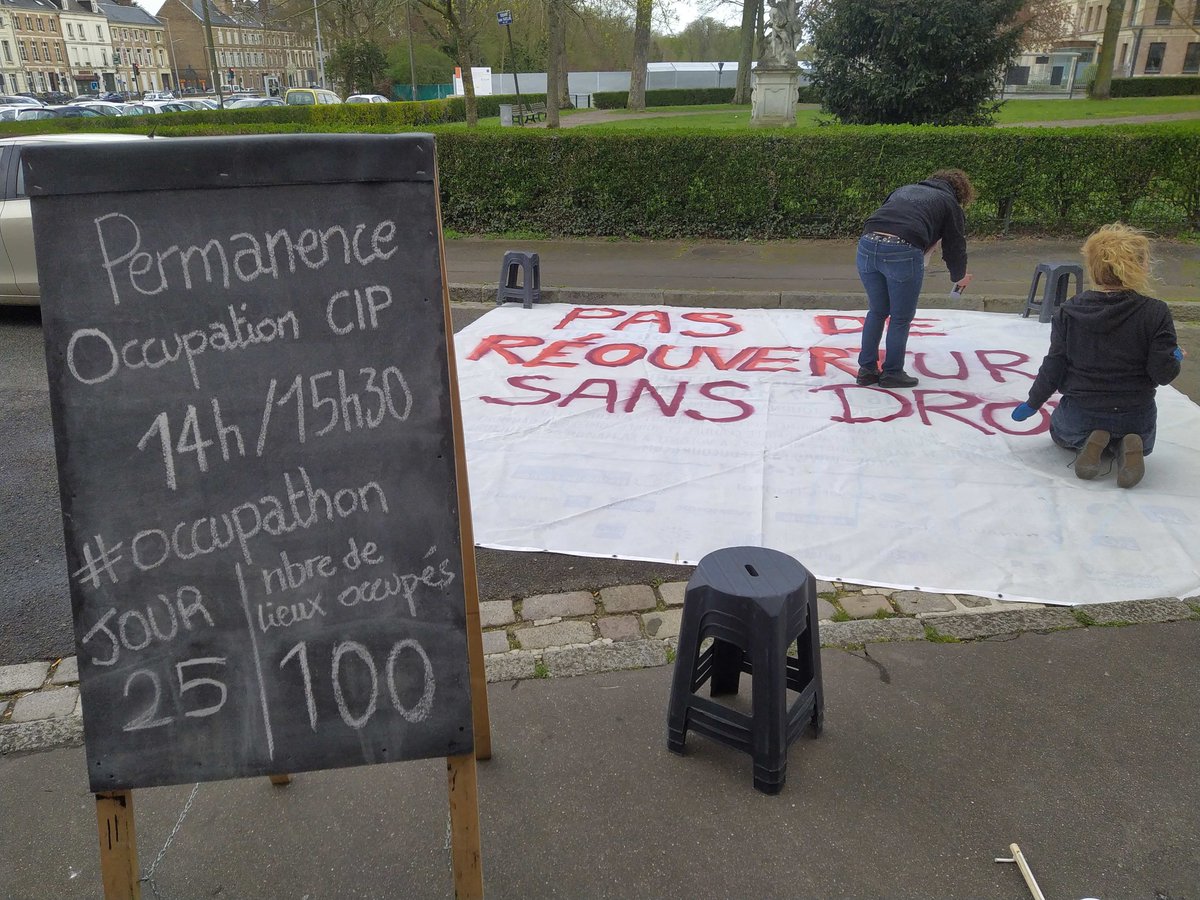 Permanence
Occupation CIP
14h/15h30
#occupathon
JOUR
25
nbre de
lieux occupés
100
PAS DE
RÉOUVERTUR
SANS DRO